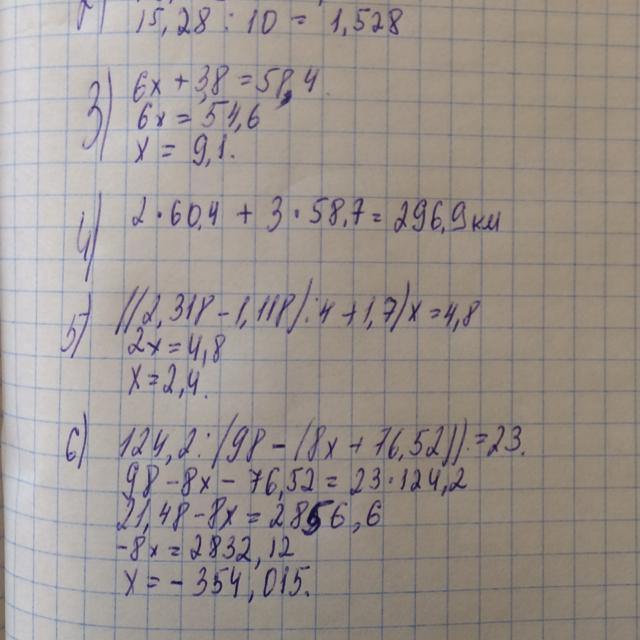 2)
15,28 : 10 = 1,528
3) 6x + 3,8 = 58,4
6x = 54,6
x = 9,1.
4) 2 · 60,4 + 3 · 58,7 = 296,9 км
5) ((2,318 - 1,118) : 4 + 1,7) x = 4,8
2x = 4,8
x = 2,4.
6) 124,2 : (98 - (8x + 76,52)) = 23.
98 - 8x - 76,52 = 23 · 124,2
21,48 - 8x = 2856,6
-8x = 2832,12
x = - 354,015.